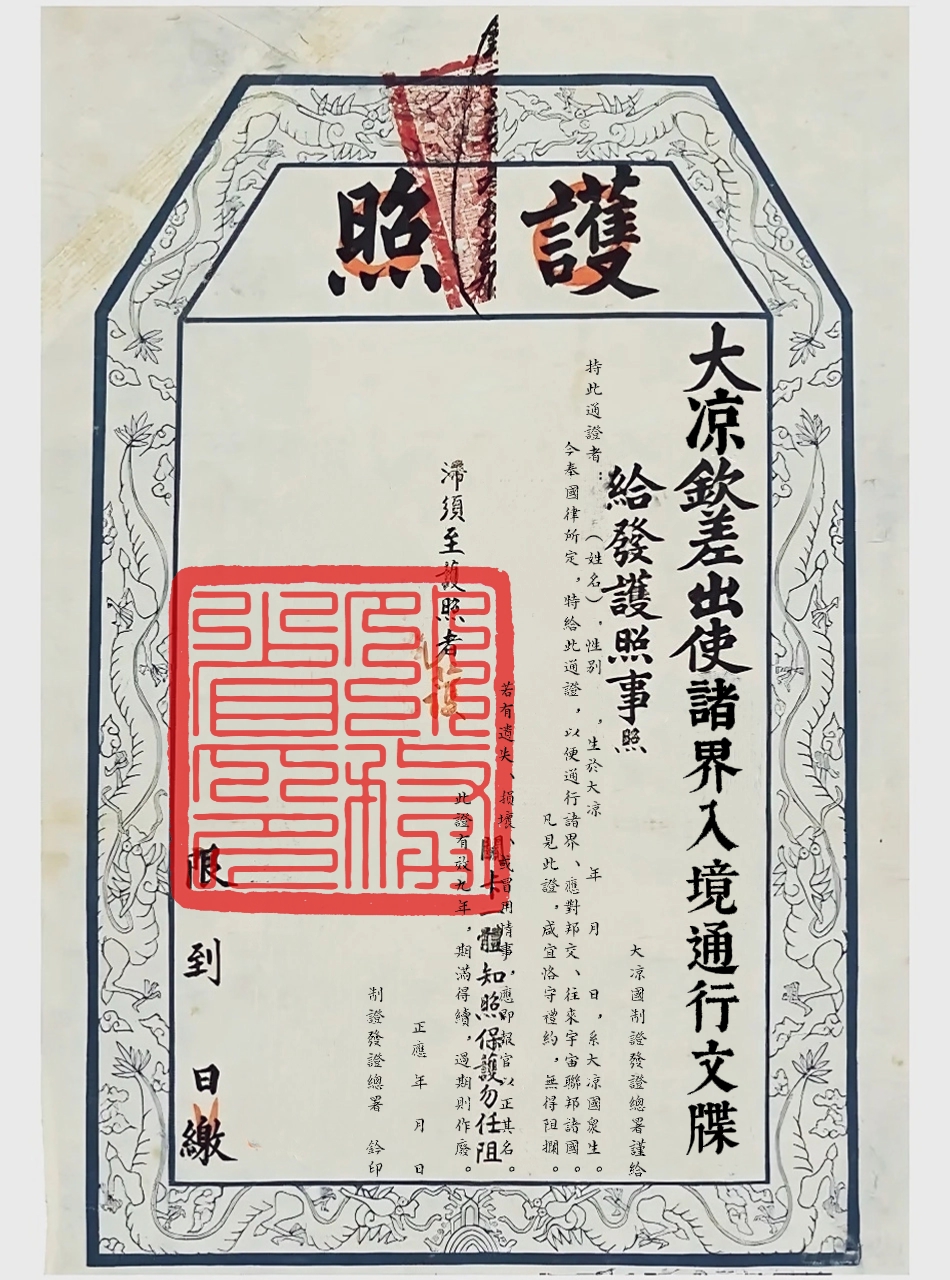 護照
大凉欽差出使諸界入境通行文牒
給發護照事照
大凉國制證發證總署謹給
持此通證者：（姓名），性別　，生於大凉　年　月　日，系大凉國衆生。
今奉國律所定，特給此通證，以便通行諸界、應對邦交、往來宇宙聯邦諸國。
凡見此證，咸宜恪守禮約，無得阻攔。
若有遺失、損壞、或冒用情事，應即報官以正其名。
關卡一體知照保護勿任阻
滯須至護照者
此證有效九年，期滿得續，過期則作廢。
正應　年　月　日
制證發證總署　鈐印
限到　日繳